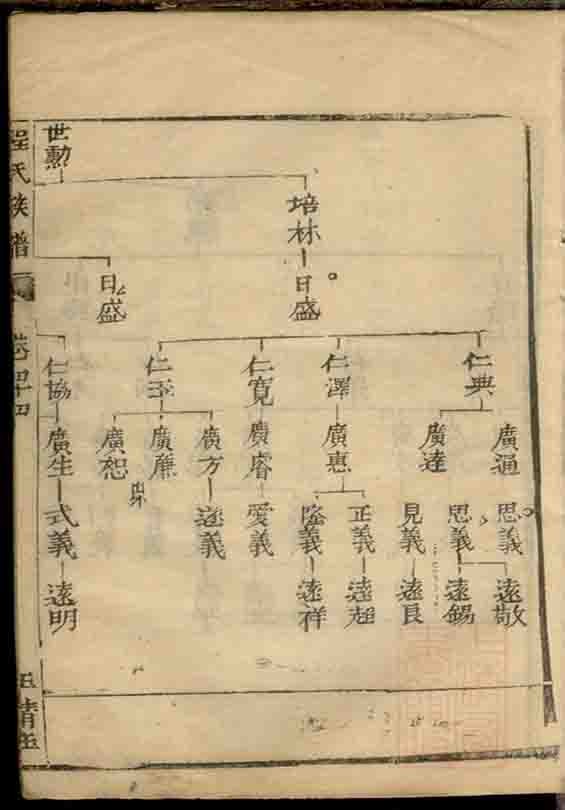 世勳
培林
日盛
日盛
仁典
仁澤
仁寬
仁玉
仁協
廣通
廣達
廣惠
廣睿
廣方
廣廉
廣恕
廣生
思義
思義
見義
正義
隆義
愛義
遂義
式義
遠敬
遠錫
遠良
遠超
遠祥
遠明
程氏族譜
卷四十四